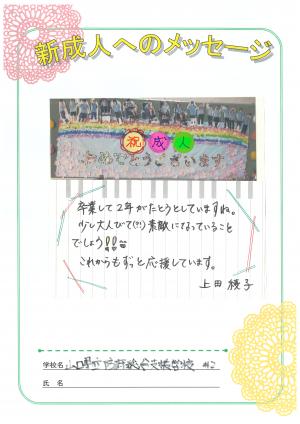 新成人へのメッセージ
祝成人
おめでとうございます
卒業して2年がたとうとしていますね。
少し大人びて(?!)素敵になっていること
でしょう!!
これからもずっと応援しています。
上田 綾子
学校名
氏 名